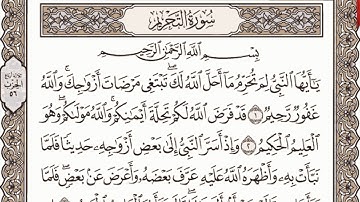 سُورَةُ التَّحْرِيمِ
الحزب ٥٦
بِسْمِ اللَّهِ الرَّحْمَٰنِ الرَّحِيمِ
يَٰٓأَيُّهَا ٱلنَّبِيُّ لِمَ تُحَرِّمُ مَآ أَحَلَّ ٱللَّهُ لَكَ ۖ تَبْتَغِى مَرْضَاتَ أَزْوَٰجِكَ ۚ وَٱللَّهُ
غَفُورٌ رَّحِيمٌ ١ قَدْ فَرَضَ ٱللَّهُ لَكُمْ تَحِلَّةَ أَيْمَٰنِكُمْ ۚ وَٱللَّهُ مَوْلَىٰكُمْ ۖ وَهُوَ
ٱلْعَلِيمُ ٱلْحَكِيمُ ٢ وَإِذْ أَسَرَّ ٱلنَّبِيُّ إِلَىٰ بَعْضِ أَزْوَٰجِهِۦ حَدِيثًا فَلَمَّا
نَبَّأَتْ بِهِۦ وَأَظْهَرَهُ ٱللَّهُ عَلَيْهِ عَرَّفَ بَعْضَهُۥ وَأَعْرَضَ عَنۢ بَعْضٍ ۖ فَلَمَّا